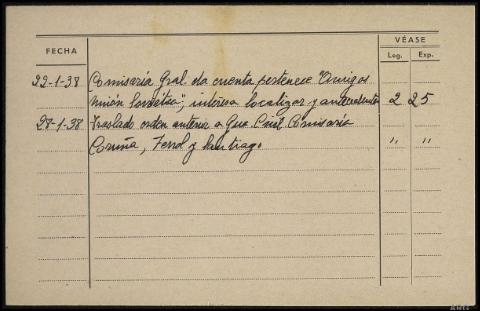 FECHA
VÉASE
Leg. Exp.
22-1-38 Comisaría Gral. da cuenta pertenece "Amigos
Unión Soviética", interesa localizar y antecedentes 2 25
28-1-38 Traslado orden anterior a Gua. Civil Comisaría
Coruña, Ferrol y Santiago. " "